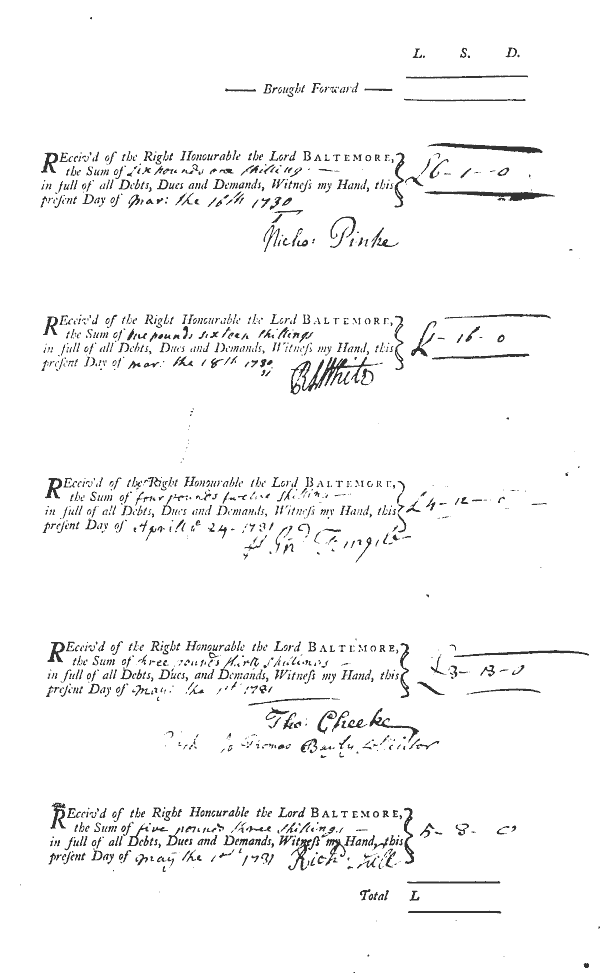 L. S. D.
Brought Forward
REceiv'd of the Right Honourable the Lord BALTEMORE,
the Sum of Six pounds one shilling
in full of all Debts, Dues and Demands, Witneſs my Hand, this
preſent Day of Mar: the 16th 1730
£6-1-0
Nicho: Pinke
REceiv'd of the Right Honourable the Lord BALTEMORE,
the Sum of five pounds sixteen shillings
in full of all Debts, Dues and Demands, Witneſs my Hand, this
preſent Day of Mar: the 18th 1730
31
16-0
White
REceiv'd of the Right Honourable the Lord BALTEMORE,
the Sum of four pounds twelve shilling
in full of all Debts, Dues and Demands, Witneſs my Hand, this
preſent Day of Aprill 24-1731
£4-12-0
REceiv'd of the Right Honourable the Lord BALTEMORE,
the Sum of three pounds shillings
in full of all Debts, Dues, and Demands, Witneſs my Hand, this
preſent Day of May: the 1st 1731
£3-13-0
Tho: Cheeke
to Thomas
REceiv'd of the Right Honourable the Lord BALTEMORE,
the Sum of five pounds three shillings
in full of all Debts, Dues and Demands, Witneſs my Hand, this
preſent Day of May the 1st 1731
5-3-0
Rich:
Total L